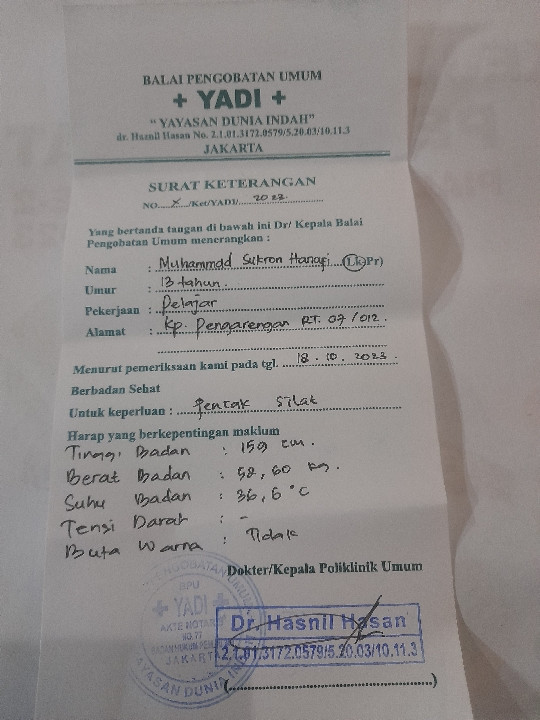 BALAI PENGOBATAN UMUM
+ YADI +
“ YAYASAN DUNIA INDAH”
dr. Hasnil Hasan No. 2.1.01.3172.0579/5.20.03/10.11.3
JAKARTA
SURAT KETERANGAN
NO. X /Ket/YADI/ 2023
Yang bertanda tangan di bawah ini Dr/ Kepala Balai
Pengobatan Umum menerangkan :
Nama : Muhammad Sukron Hanafi (Lk/Pr)
Umur : 13 tahun.
Pekerjaan : Pelajar
Alamat : Kp. Pengarengan RT. 07 / 012.
Menurut pemeriksaan kami pada tgl. 18 . 10 . 2023 .
Berbadan Sehat
Untuk keperluan : Pencak Silat
Harap yang berkepentingan maklum
Tinggi Badan : 159 cm.
Berat Badan : 58,60 kg.
Suhu Badan : 36,6 °C
Tensi Darah : -
Buta Warna : Tidak
Dokter/Kepala Poliklinik Umum
BPU
YADI
AKTE NOTARIS
NO. 77
JAKARTA
YAYASAN DUNIA
Dr. Hasnil Hasan
2.1.01.3172.0579/5.20.03/10.11.3
(....................................................)